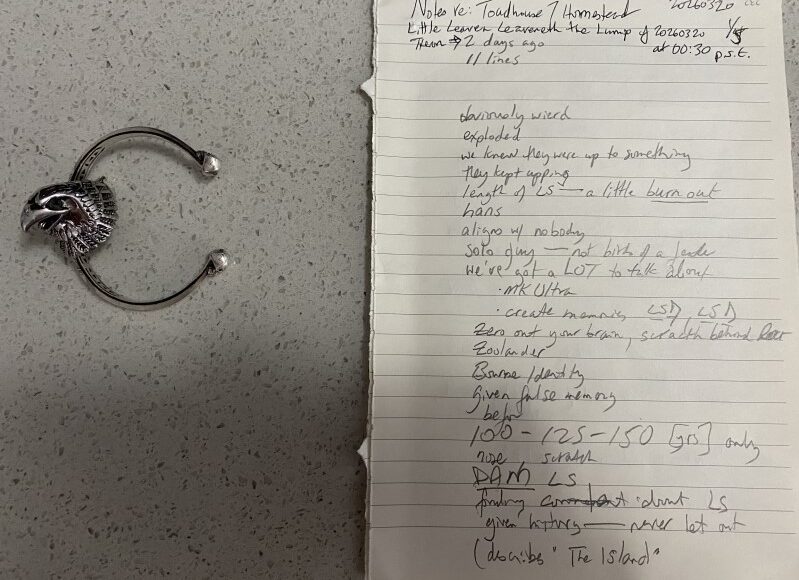 Notes re: Toadhouse 7 Homestead 20260320
Little Leaven Leaveneth the Lump of 20260320 1/5
Theon → 2 days ago at 00:30 p.s.t.
11 lines
obviously wierd
exploded
we knew they were up to something
they kept upping
length of LS — a little burn out
hans
aligns w/ nobody
solo guy — not birth of a leader
we've got a LOT to talk about
· MK Ultra
· create memories LSD, LSD
Zero out your brain, scratch behind
Zoolander
Bourne Identity
given false memory
befor
100 - 125 - 150 [yrs] only
nose scratch
DAM LS
finding about LS
given history — never let out
(describes "The Island"